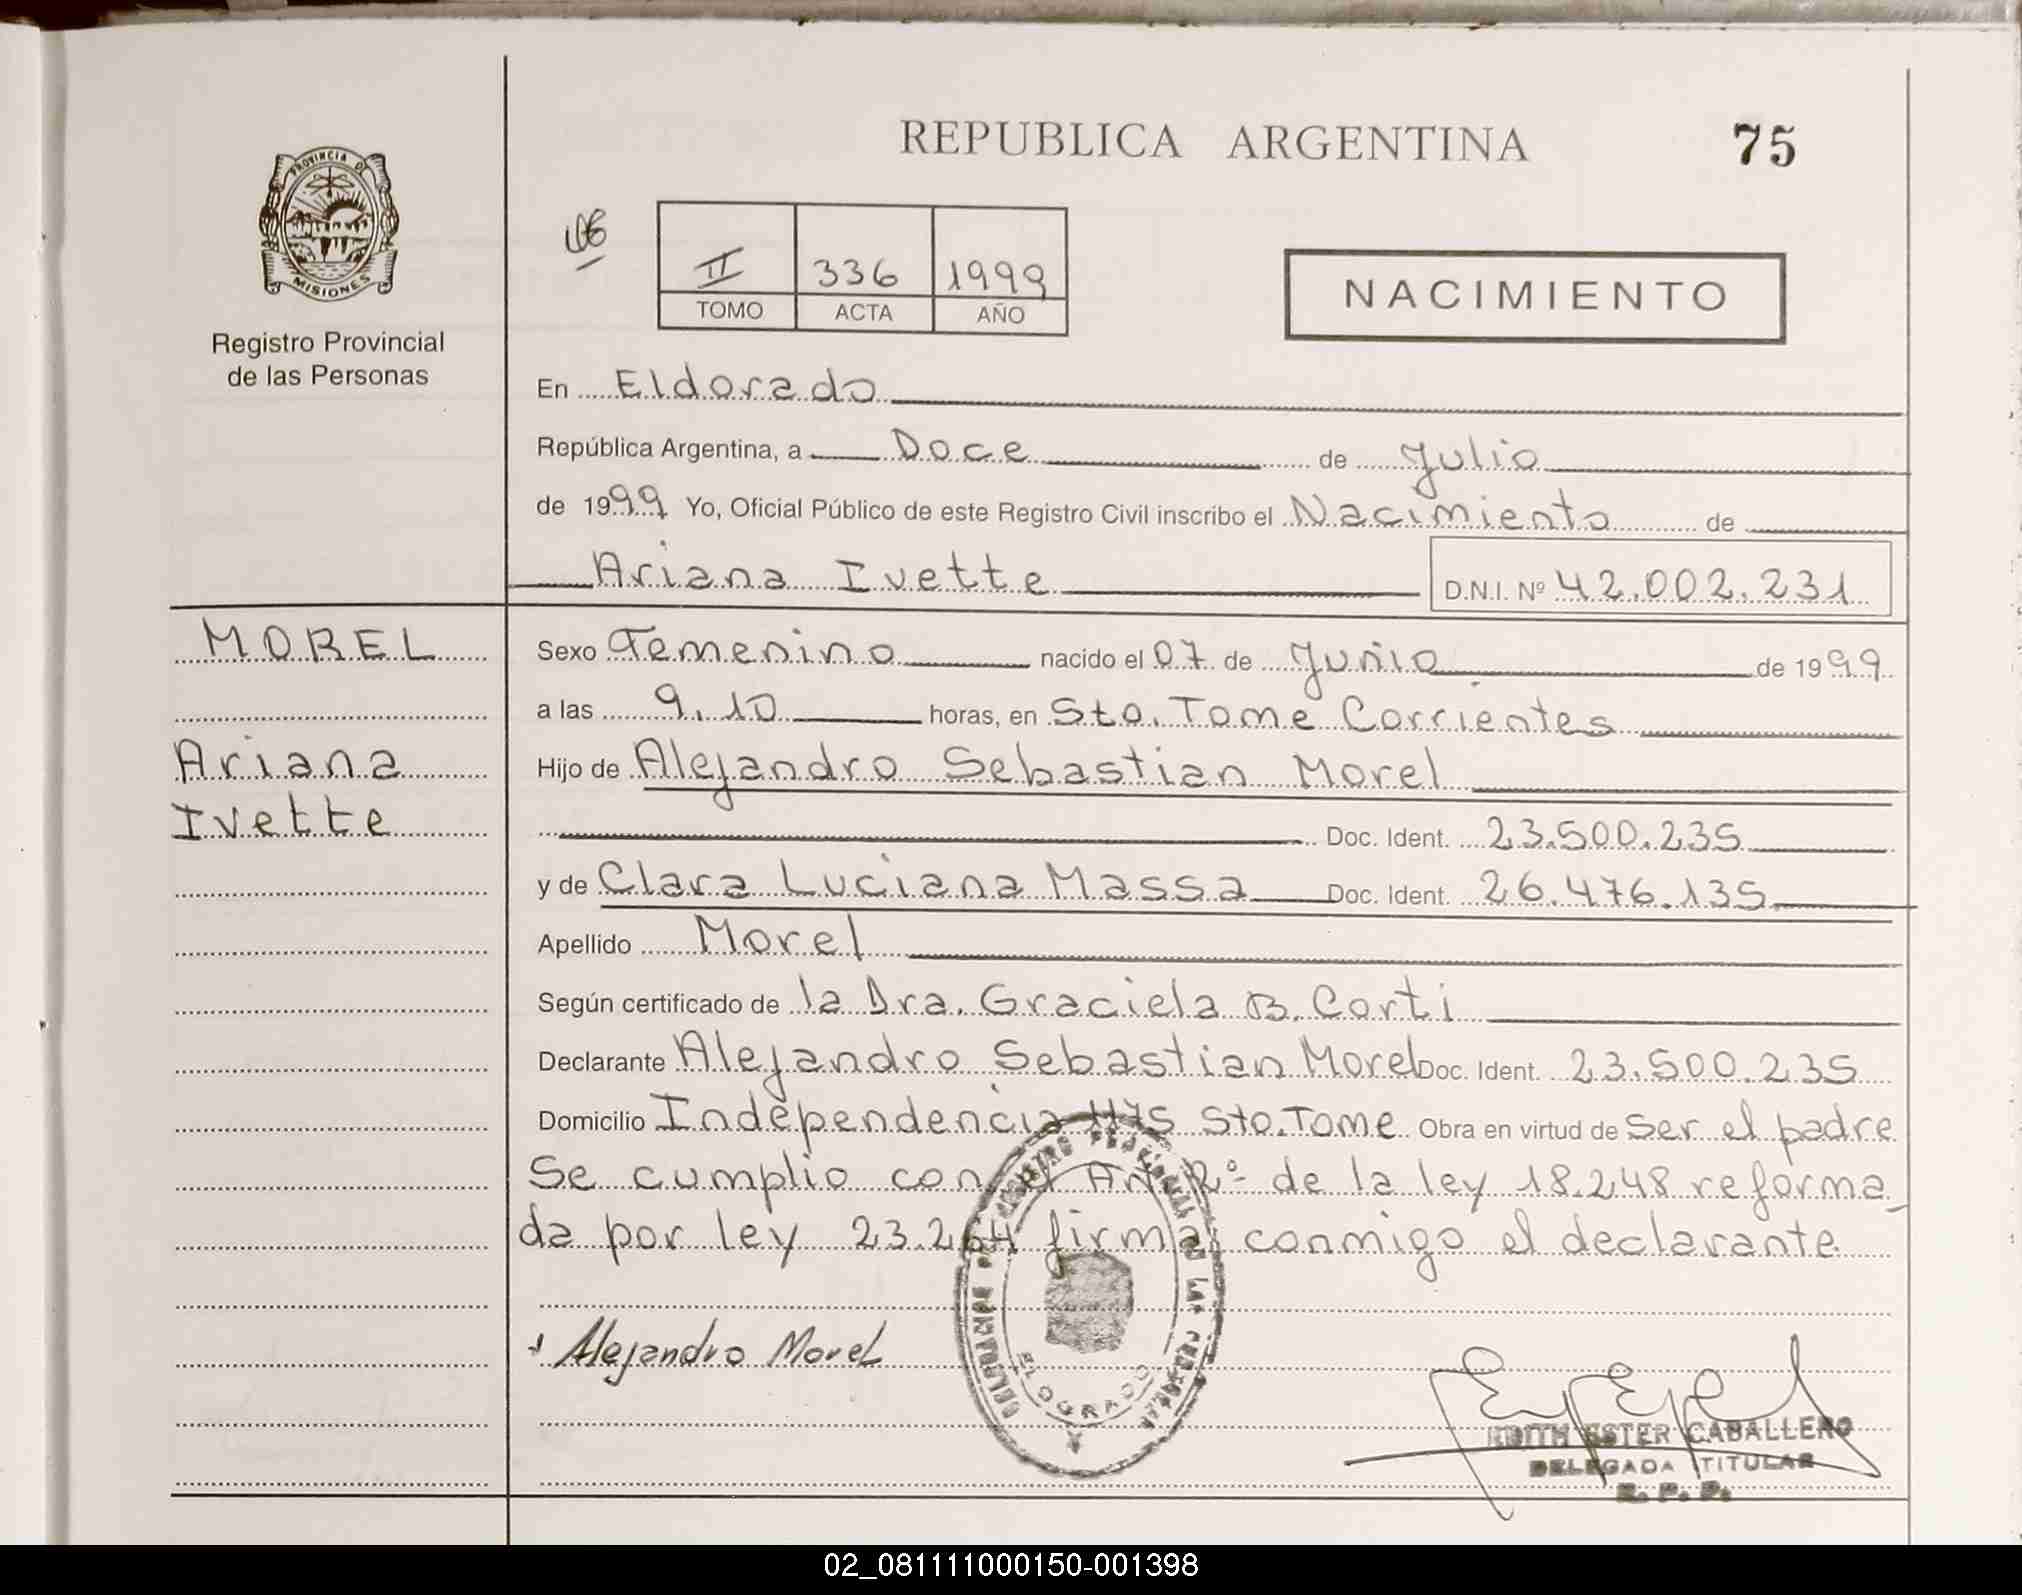 REPUBLICA ARGENTINA
75
PROVINCIA DE
MISIONES
Registro Provincial
de las Personas
II 336 1999
TOMO ACTA AÑO
NACIMIENTO
En Eldorado
República Argentina, a Doce de Julio
de 1999 Yo, Oficial Público de este Registro Civil inscribo el Nacimiento de
Ariana Ivette D.N.I. Nº 42.002.231
MOREL
Ariana
Ivette
Sexo Femenino nacido el 07 de Junio de 1999
a las 9.10 horas, en Sto. Tome Corrientes
Hijo de Alejandro Sebastian Morel
Doc. Ident. 23.500.235
y de Clara Luciana Massa Doc. Ident. 26.476.135
Apellido Morel
Según certificado de la Dra. Graciela B. Corti
Declarante Alejandro Sebastian Morel Doc. Ident. 23.500.235
Domicilio Independencia 1175 Sto. Tome Obra en virtud de Ser el padre
Se cumplio con el Art 2º de la ley 18.248 reforma_
da por ley 23.264 firma conmigo el declarante
Alejandro Morel
ELDORADO
EDITH ESTER CABALLERO
DELEGADA TITULAR
R. P. P.
02_081111000150-001398